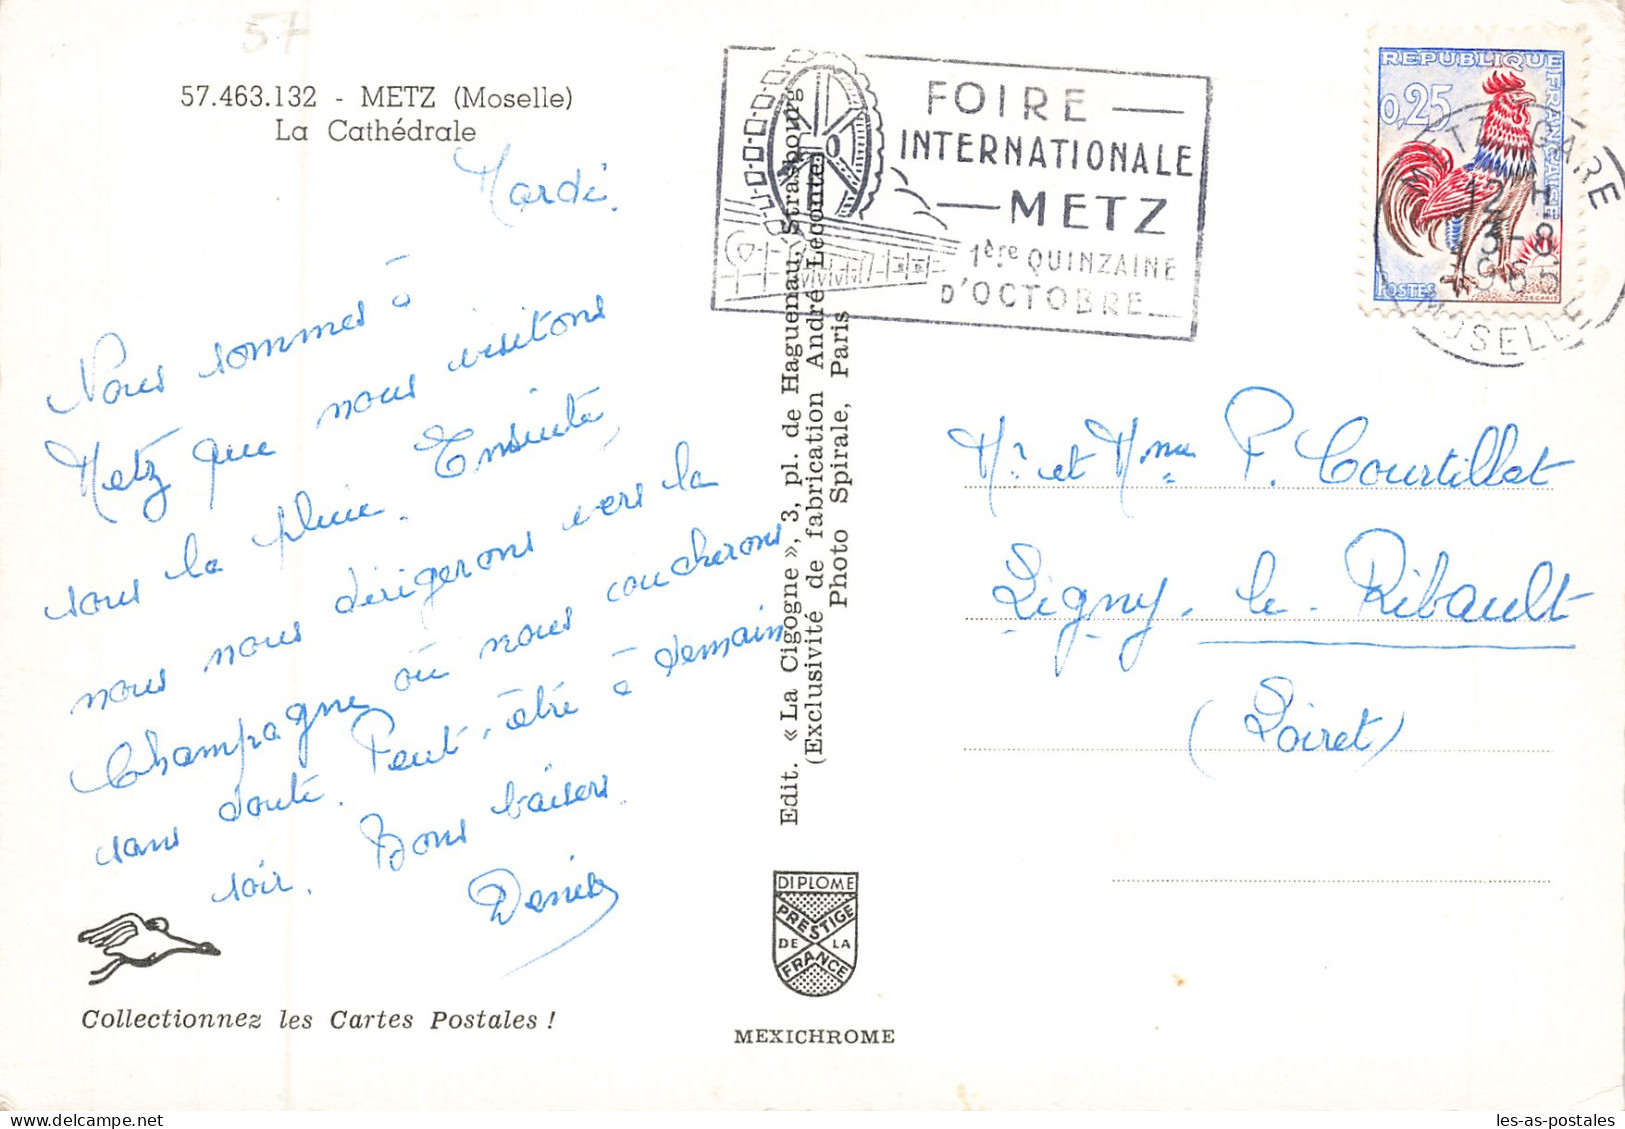 57
57.463.132 - METZ (Moselle)
La Cathédrale
Mardi.
Nous sommes à
Metz que nous visitons
sous la pluie. Ensuite,
nous nous dirigerons vers la
Champagne où nous coucherons
sans doute. Peut-être à demain
soir. Bons baisers.
Denise
Collectionnez les Cartes Postales !
Edit. « La Cigogne », 3, pl. de Haguenau, Strasbourg
(Exclusivité de fabrication André Leconte)
Photo Spirale, Paris
DIPLOME
PRESTIGE
DE LA
FRANCE
MEXICHROME
FOIRE
INTERNATIONALE
METZ
1ère QUINZAINE
D'OCTOBRE
REPUBLIQUE FRANÇAISE
0,25
POSTES
DECARIS
METZ GARE
12 H
3-8
1965
MOSELLE
Mr et Mme P. Courtillat
Ligny-le-Ribault
(Loiret)
les-as-postales